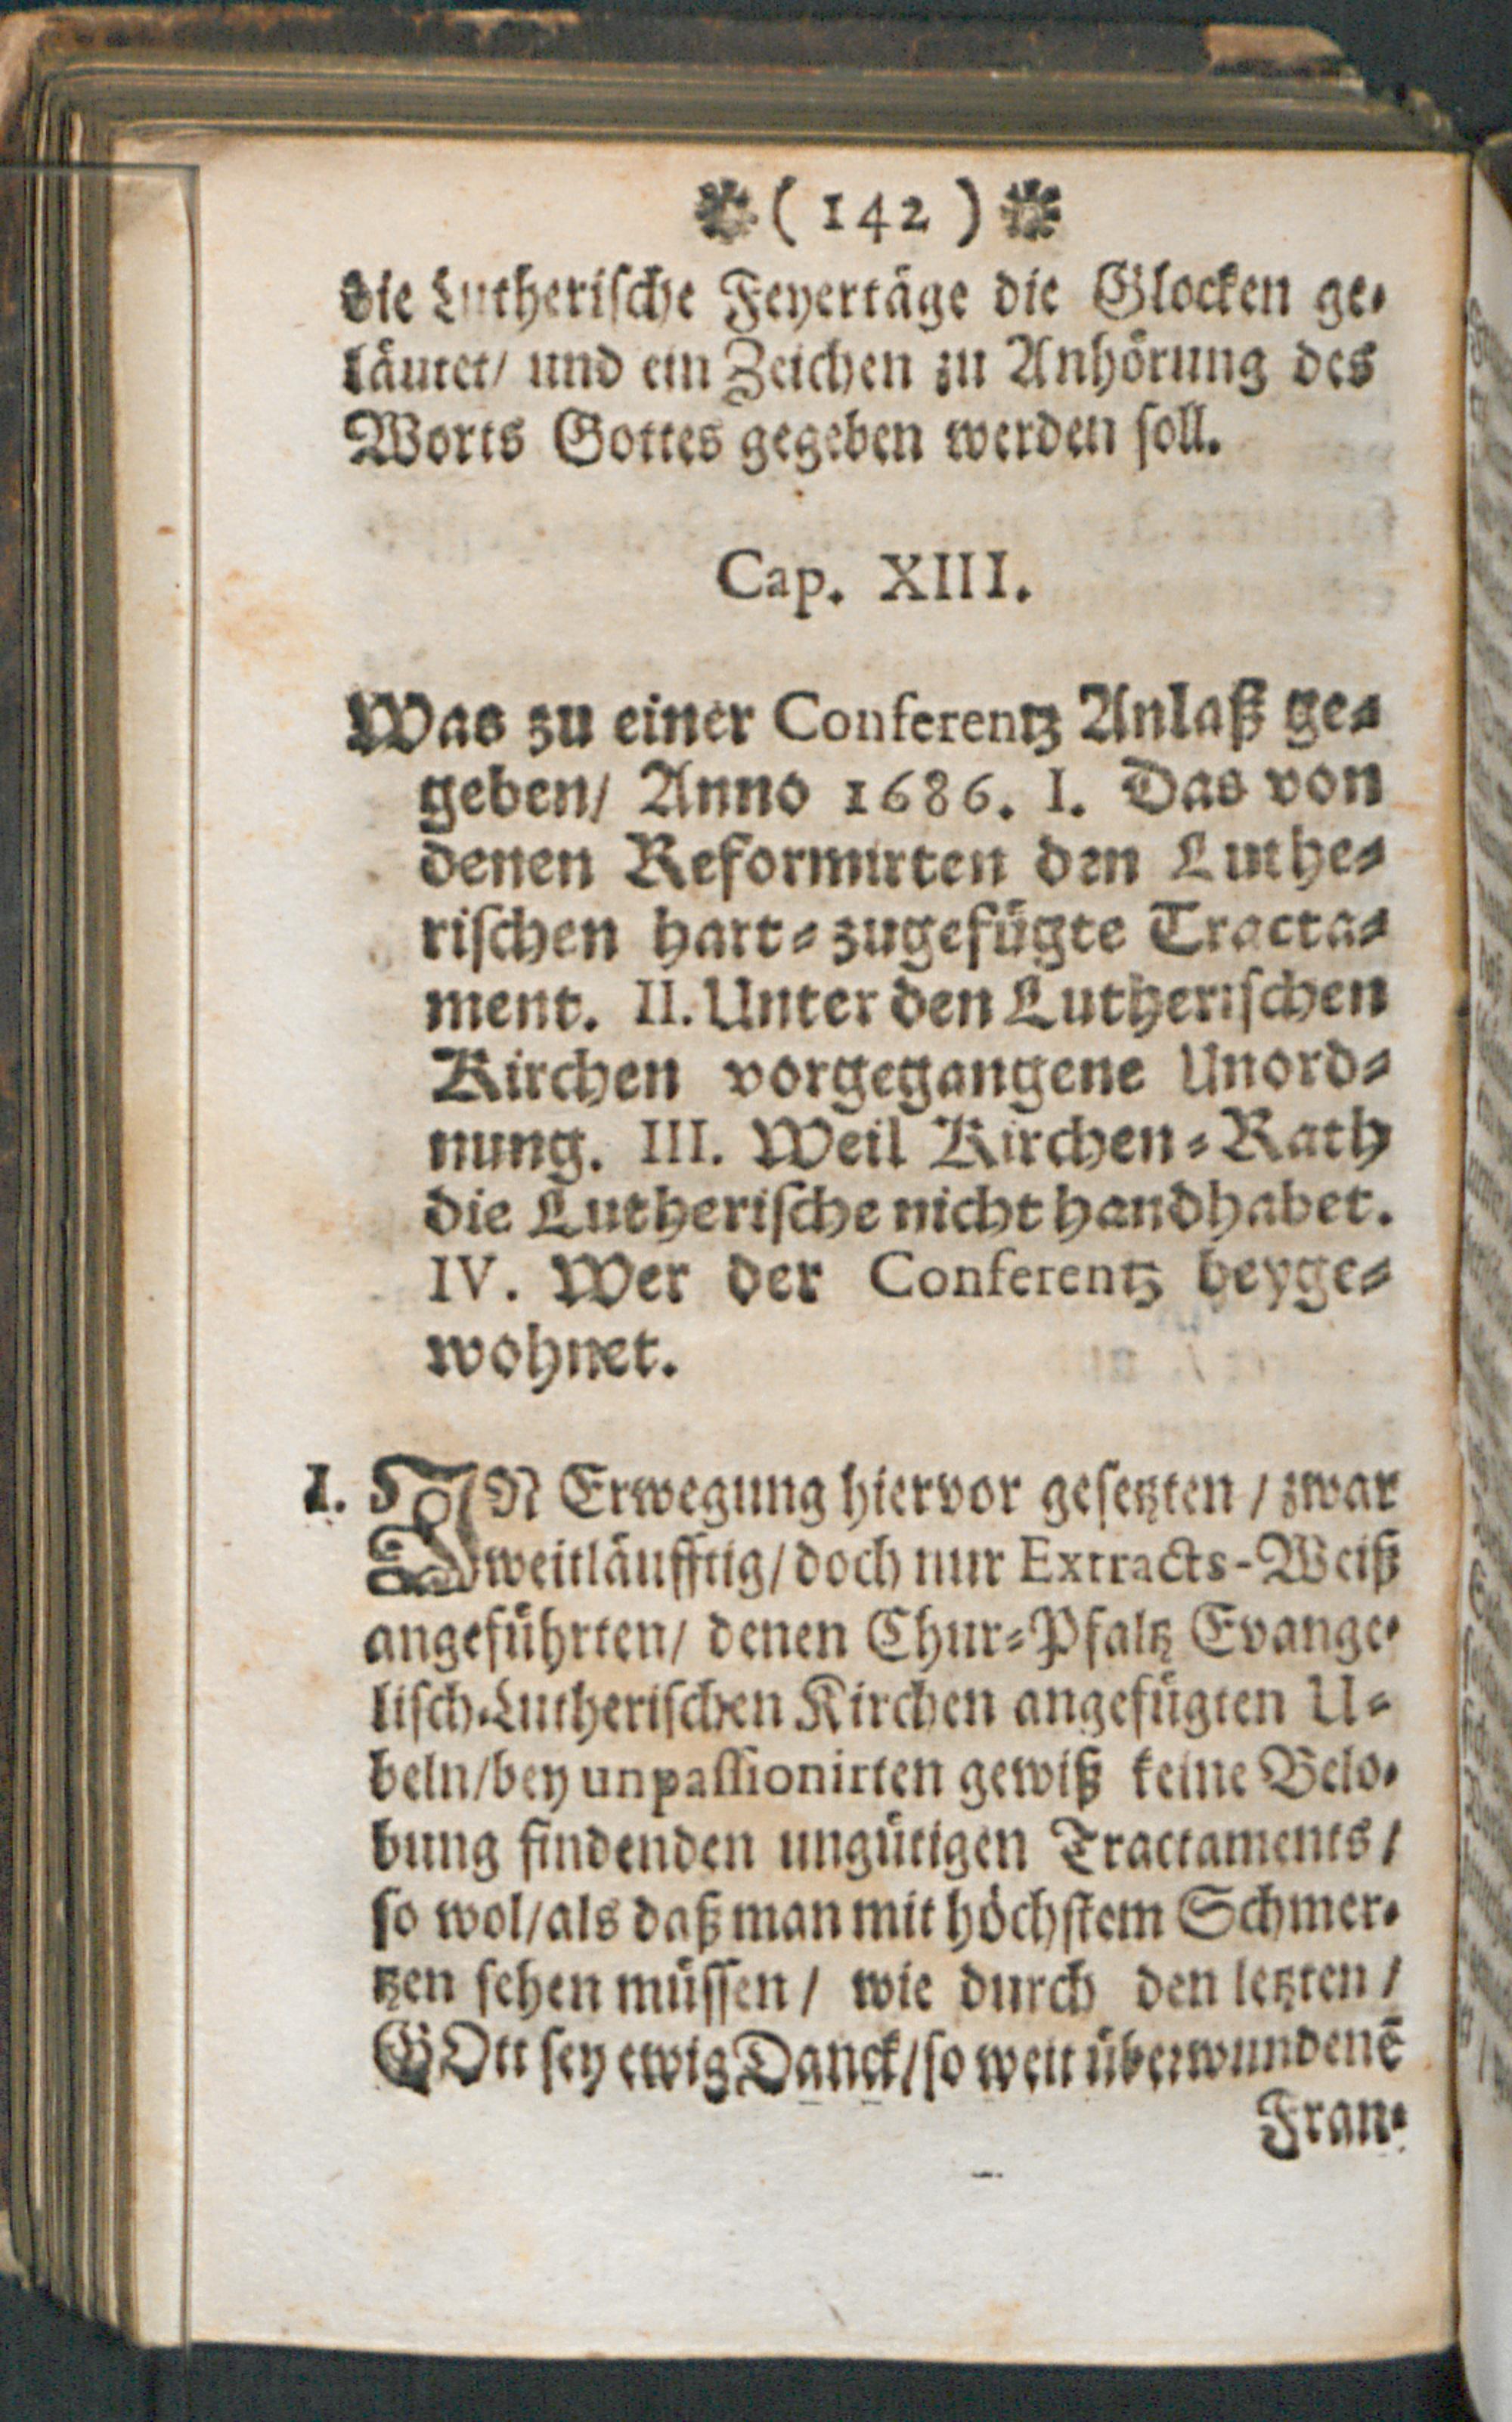 ( 142 )
die Lutherische Feyertäge die Glocken ge-
läutet/ und ein Zeichen zu Anhörung des
Worts Gottes gegeben werden soll.
Cap. XIII.
Was zu einer Conferentz Anlaß ge-
geben/ Anno 1686. I. Das von
denen Reformirten den Luthe-
rischen hart-zugefügte Tracta-
ment. II. Unter den Lutherischen
Kirchen vorgegangene Unord-
nung. III. Weil Kirchen-Rath
die Lutherische nicht handhabet.
IV. Wer der Conferentz beyge-
wohnet.
I. IN Erwegung hiervor gesetzten / zwar
weitläufftig/ doch nur Extracts-Weiß
angeführten/ denen Chur-Pfaltz Evange-
lisch-Lutherischen Kirchen angefügten U-
beln/bey unpassionirten gewiß keine Belo-
bung findenden ungütigen Tractaments/
so wol/als daß man mit höchstem Schmer-
tzen sehen müssen / wie durch den letzten /
GOtt sey ewig Danck/so weit überwundenē
Fran-